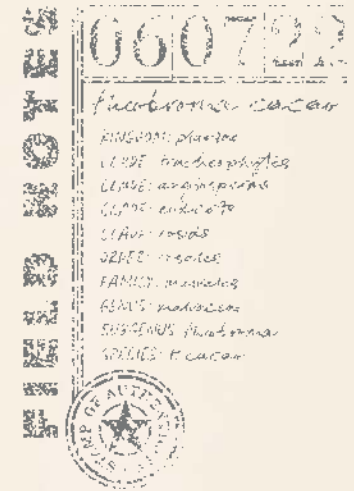 FIELD NOTES
060722
Theobroma cacao
KINGDOM: plantae
CLADE: tracheophytes
CLADE: angiosperms
CLADE: eudicots
CLADE: rosids
ORDER: rosales
FAMILY: malvales
GENUS: malvaceae
SUBGENUS: theobroma
SPECIES: t cacao
STAMP OF AUTHENTICITY